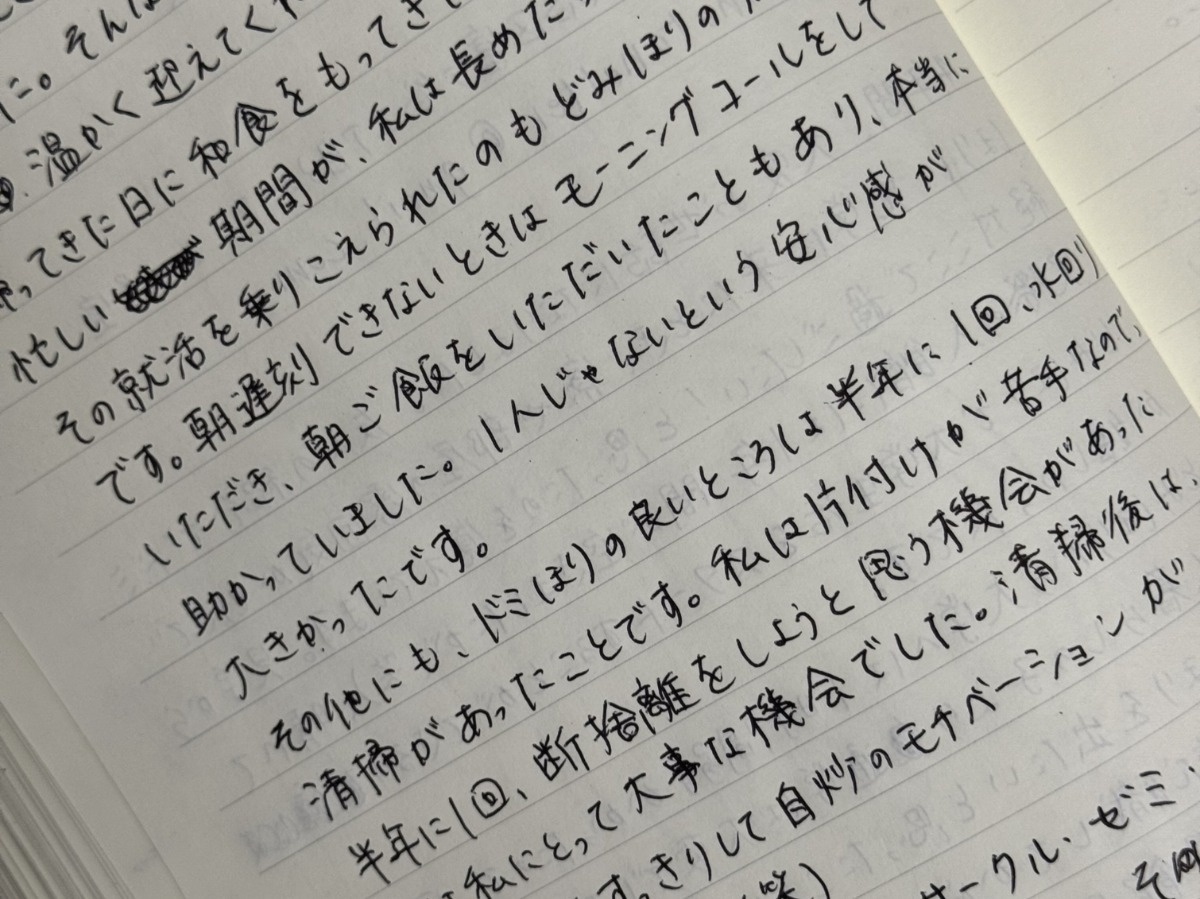 に。そん
温かく迎えてくだ
ってきた日に和食をもってき
忙しい期間が、私は長めだ
その就活を乗りこえられたのもどみほりの
です。朝遅刻できないときはモーニングコールをして
いただき、朝ご飯をいただいたこともあり、本当に
助かっていました。1人じゃないという安心感が
大きかったです。
その他にも、ドミほりの良いところは半年に1回、水回り
清掃があったことです。私は片付けが苦手なので、
半年に1回、断捨離をしようと思う機会があった
私にとって大事な機会でした。清掃後は、
すっきりして自炊のモチベーションが
(笑)
サークル・ゼミ